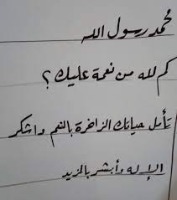 محمد رسول الله
كم لله من نعمة عليك؟
تأمل حياتك الزاخرة بالنعم واشكر
الإله وأبشر بالمزيد